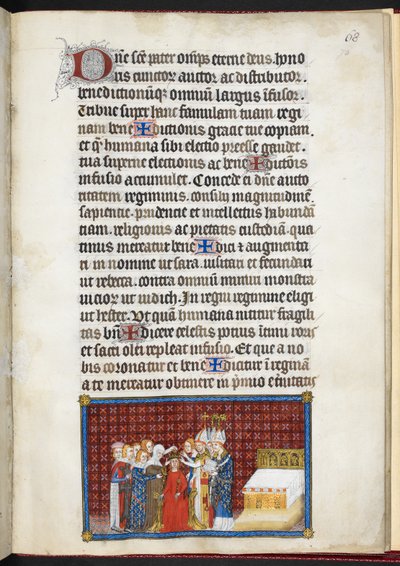 68
Dn̄e sc̄e pater om̄ps eterne deus. hono
ris cunctor̄ auctor ac distributor.
benedictionūq̨ omniū largus īfusor.
Tribue super hanc famulam tuam regi
nam bene✠dictionis gratie tue copiam.
et q̄ humana sibi electio preesse gaudet.
tua superne electionis ac bene✠dictōis
infusio accumulet. Concede ei dn̄e aucto
ritatem regiminis. consilij magnitudinē
sapientie. prudencie et intellectus habundā
ciam. religionis ac pietatis custodiā. qua
tinus mereatur bene✠dici et augmenta
ri in nomine ut sara. uisitari et fecundari
ut rebecca. contra omniū muniri monstra
uicior̄ ut iudich. In regni regimine eligi
ut hester. Ut quā humana nititur fragili
tas bn̄✠dicere celestis potius ītimi roris
et sacri olei repleat infusio. Et que a no
bis coronatur et bene✠dicitur ī reginā
a te mereatur obtinere in p̄mio et̄nitatis